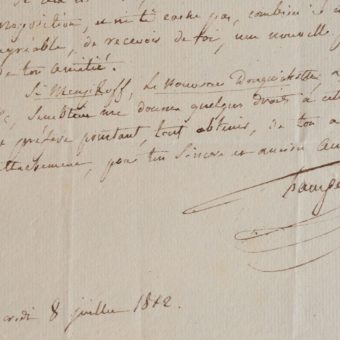 la
proposition, et ne te cache pas, combien il
agréable, de recevoir de toi, une nouvelle
de ton amitié.
Si Menzikoff, Le Nouveau Donquichotte
semblent me donner quelques droits à cet
préfère pourtant, tout obtenir, de ton a
attachement, pour ton sincère et ancien am
credi 8 juillet 1812.